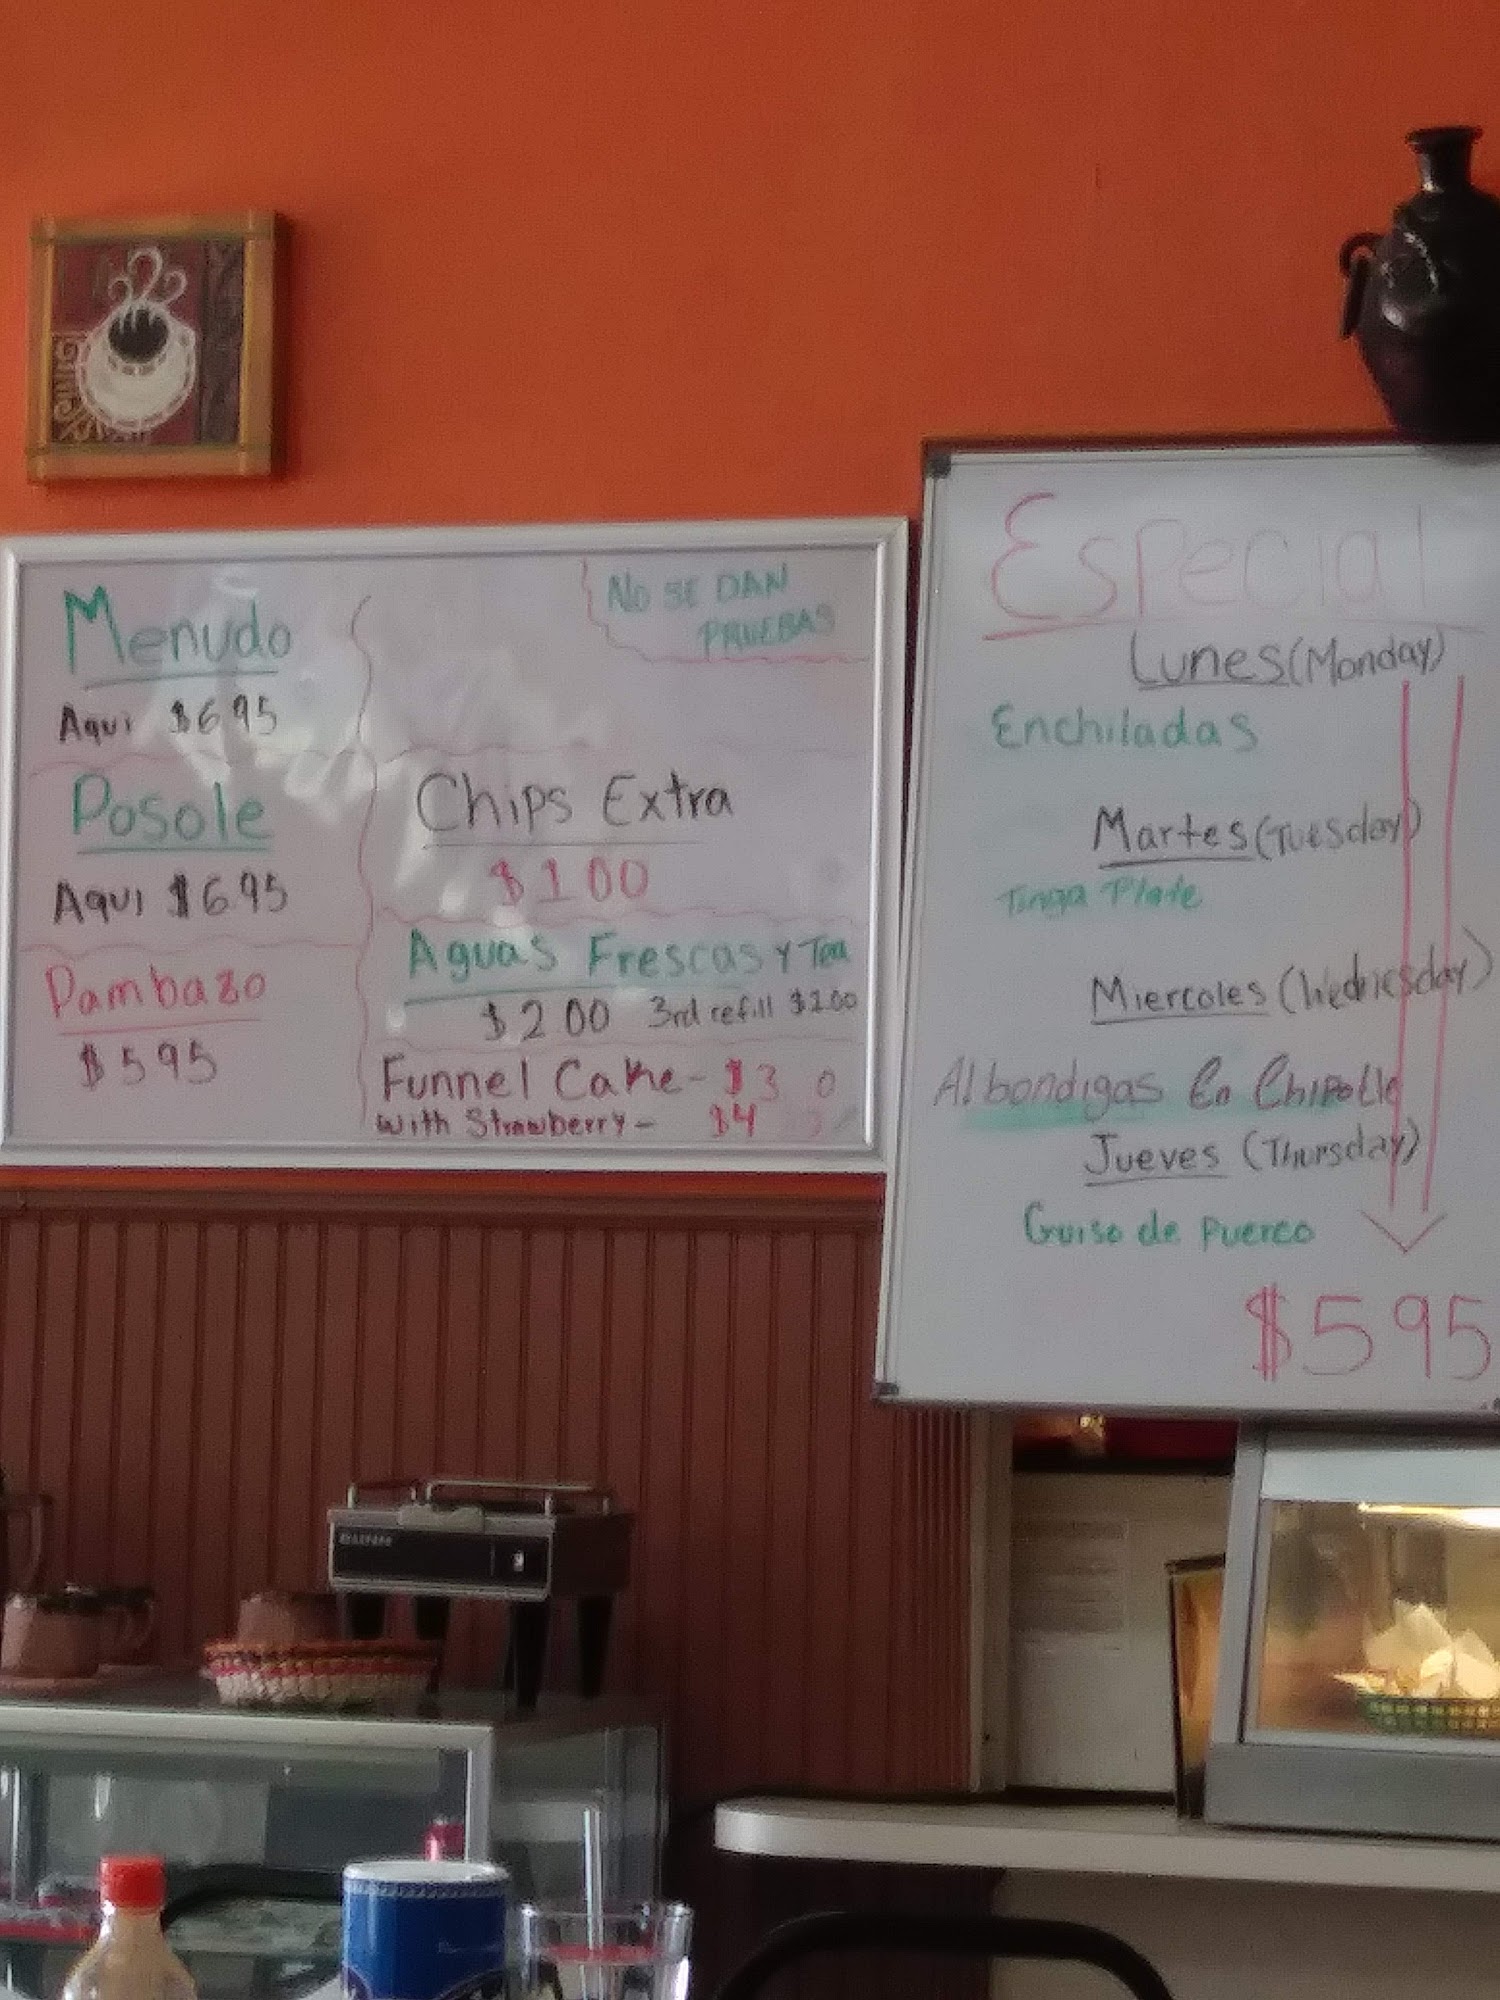 Menudo
Aqui $6.95
Posole
Aqui $6.95
Pambazo
$5.95
NO SE DAN
PRUEBAS
Chips Extra
$1.00
Aguas Frescas y Tea
$2.00 3rd refill $1.00
Funnel Cake - $3
with Strawberry - $4
Especial
Lunes (Monday)
Enchiladas
Martes (Tuesday)
Tinga Plate
Miercoles (Wednesday)
Albondigas En Chipotle
Jueves (Thursday)
Guiso de Puerco
$5 95